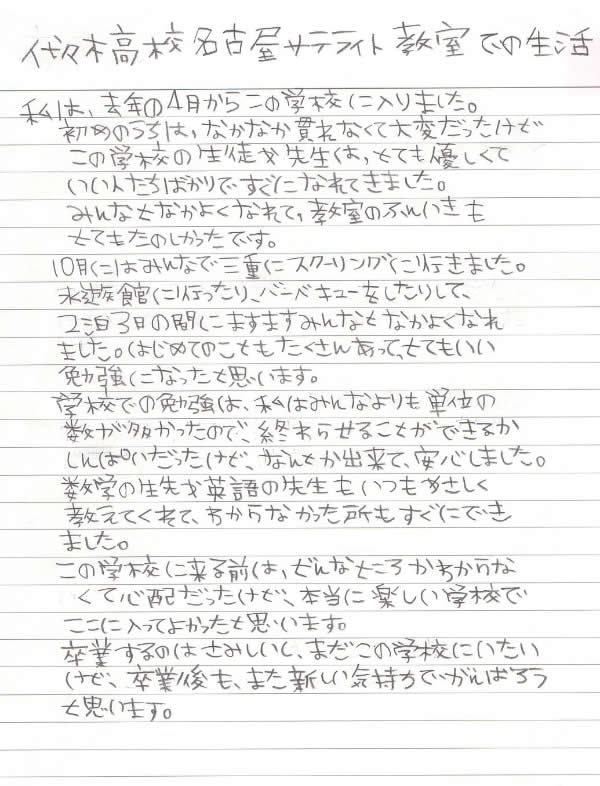 代々木高校名古屋サテライト教室での生活
私は、去年の4月からこの学校に入りました。
初めのころは、なかなか貫れなくて大変だったけど
この学校の生徒や先生は、とても優しくて
いい人たちばかりですぐになれてきました。
みんなとなかよくなれて、教室のふんいきも
とてもたのしかったです。
10月にはみんなで三重にスクーリングに行きました。
水遊族館に行ったり、バーベキューをしたりして、
2泊3日の間にますますみんなとなかよくなれ
ました。はじめてのこともたくさんあって、とてもいい
勉強になったと思います。
学校での勉強は、私はみんなよりも単位の
数が多かったので、終わらせることができるか
しんぱいだったけど、なんとか出来て、安心しました。
数学の生先や英語の先生もいつもやさしく
教えてくれて、わからなかった所もすぐにでき
ました。
この学校に来る前は、どんなところかわからな
くて心配だったけど、本当に楽しい学校で
ここに入ってよかったと思います。
卒業するのはさみしいし、まだこの学校にいたい
けど、卒業後も、また新しい気持ちでがんばろう
と思います。